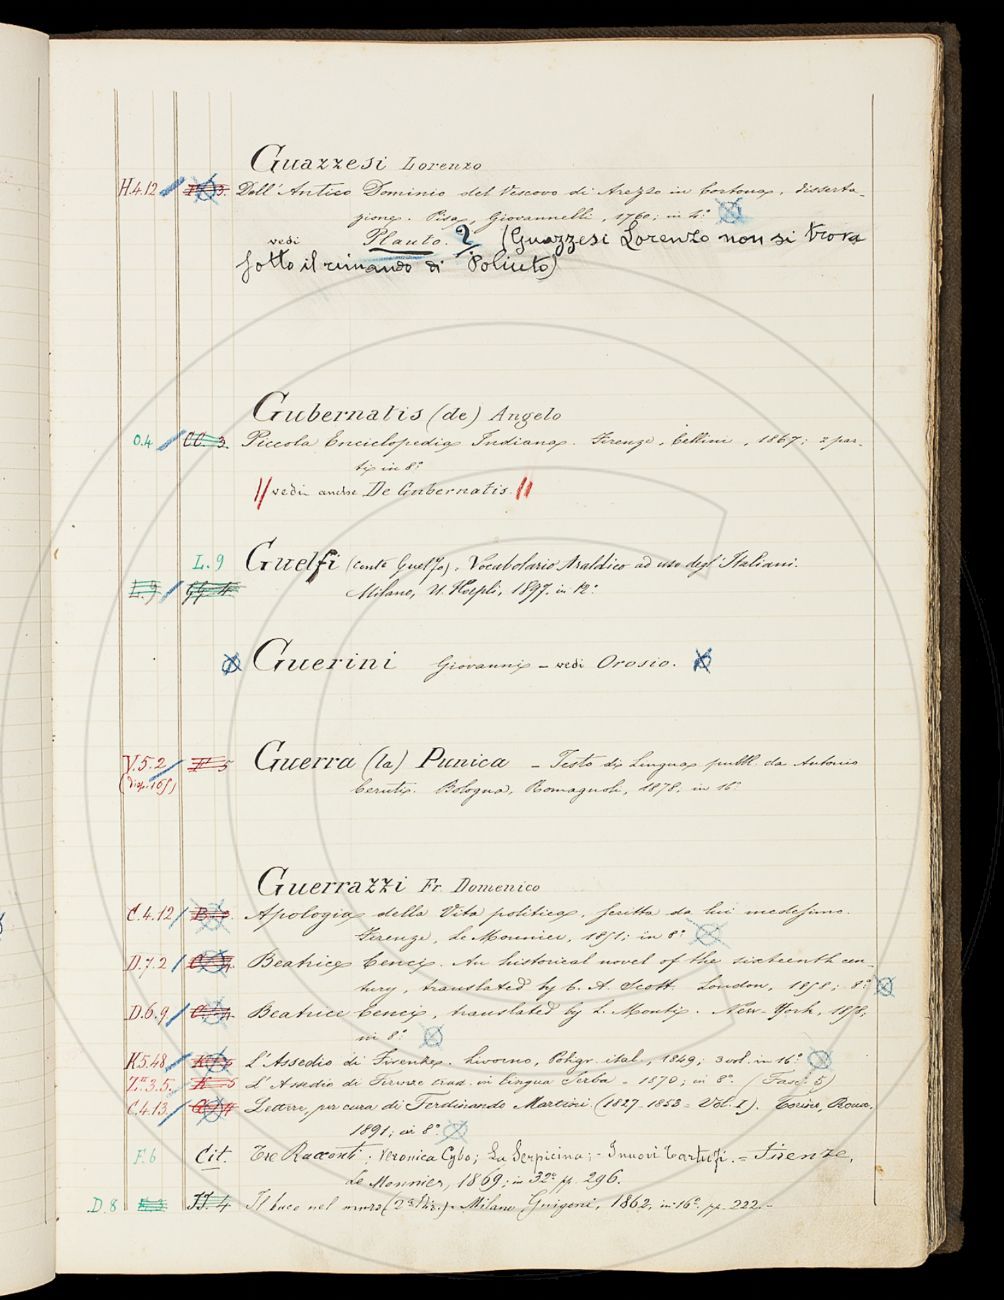 Guazzesi Lorenzo
H.4.12 Dell'Antico Dominio del Vescovo di Arezzo in Cortona, disserta-
zione. Pisa, Giovannelli, 1760; in 4.º
vedi Plauto. 2 (Guazzesi Lorenzo non si trova
sotto il rimando di Poliuto)
Gubernatis (de) Angelo
O.4 CC. 3. Piccola Enciclopedia Indiana. Firenze, Cellini, 1867; 2 par-
ti in 8.º
vedi anche De Gubernatis.
L.9 Guelfi (conte Guelfo). Vocabolario Araldico ad uso degl'Italiani.
L.9 Milano, U. Hoepli, 1897. in 12.º
Guerini Giovanni - vedi Orosio.
V.5.2 5 Guerra (la) Punica - Testo di Lingua pubbl. da Antonio
(disp. 165) Ceruti. Bologna, Romagnoli, 1878. in 16º
Guerrazzi Fr. Domenico
C.4.12 Apologia della Vita politica, scritta da lui medesimo.
Firenze, Le Monnier, 1851; in 8º
D.7.2 Beatrice Cenci. An historical novel of the sixteenth cen-
tury, translated by C. A. Scott. London, 1858; 8º
D.6.9 Beatrice Cenci, translated by L. Monti. New-York, 1858,
in 8º
K5.48 L'Assedio di Firenze. Livorno, Poligr. ital., 1849; 3 vol. in 16º
3.5. K 5 L'Assedio di Firenze trad. in lingua Serba - 1870; in 8º. (Fasc. 5)
C.4.13. Lettere, per cura di Ferdinando Martini. (1827-1853 - Vol. I). Torino, Roux,
1891; in 8º
F.6 Cit. Tre Racconti: Veronica Cybo; La Serpicina; - I nuovi Tartufi. - Firenze,
Le Monnier, 1869; in 32º pp. 296.
D.8 II. 4 Il buco nel muro (2ª Ediz.). Milano Guigoni, 1862, in 16º. pp. 222.-